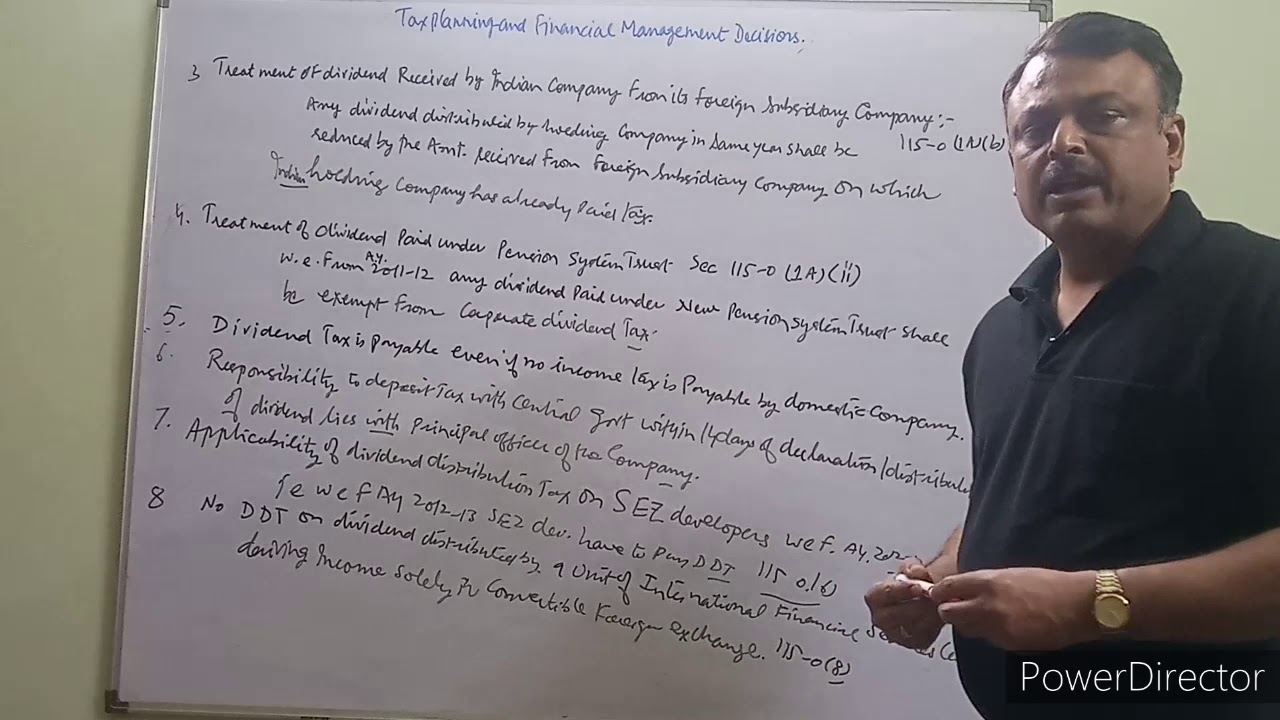 Tax planning and Financial Management Decisions.
3 Treatment of dividend Received by Indian Company From its Foreign Subsidiary Company:-
Any dividend distributed by holding Company in Same year shall be 115-O (1A)(b)
reduced by the Amt. received from foreign subsidiary Company on which
Indian holding Company has already Paid Tax.
4. Treatment of dividend Paid under Pension System Trust Sec 115-O (1A)(ii)
w.e.from A.Y. 2011-12 any dividend Paid under New Pension System Trust shall
be exempt from Corporate dividend Tax.
5. Dividend Tax is payable even if no income tax is Payable by domestic Company.
6. Responsibility to deposit Tax with Central Govt within 14 days of declaration/distribut
of dividend lies with Principal officer of the Company.
7. Applicability of dividend distribution Tax on SEZ developers wef. Ay.
ie wef Ay 2012-13 SEZ dev. have to Pay DDT 115 O(6)
8 No DDT on dividend distributed by a Unit of International Financial
deriving Income Solely in Convertible Foreign exchange. 115-O(8)
PowerDirector